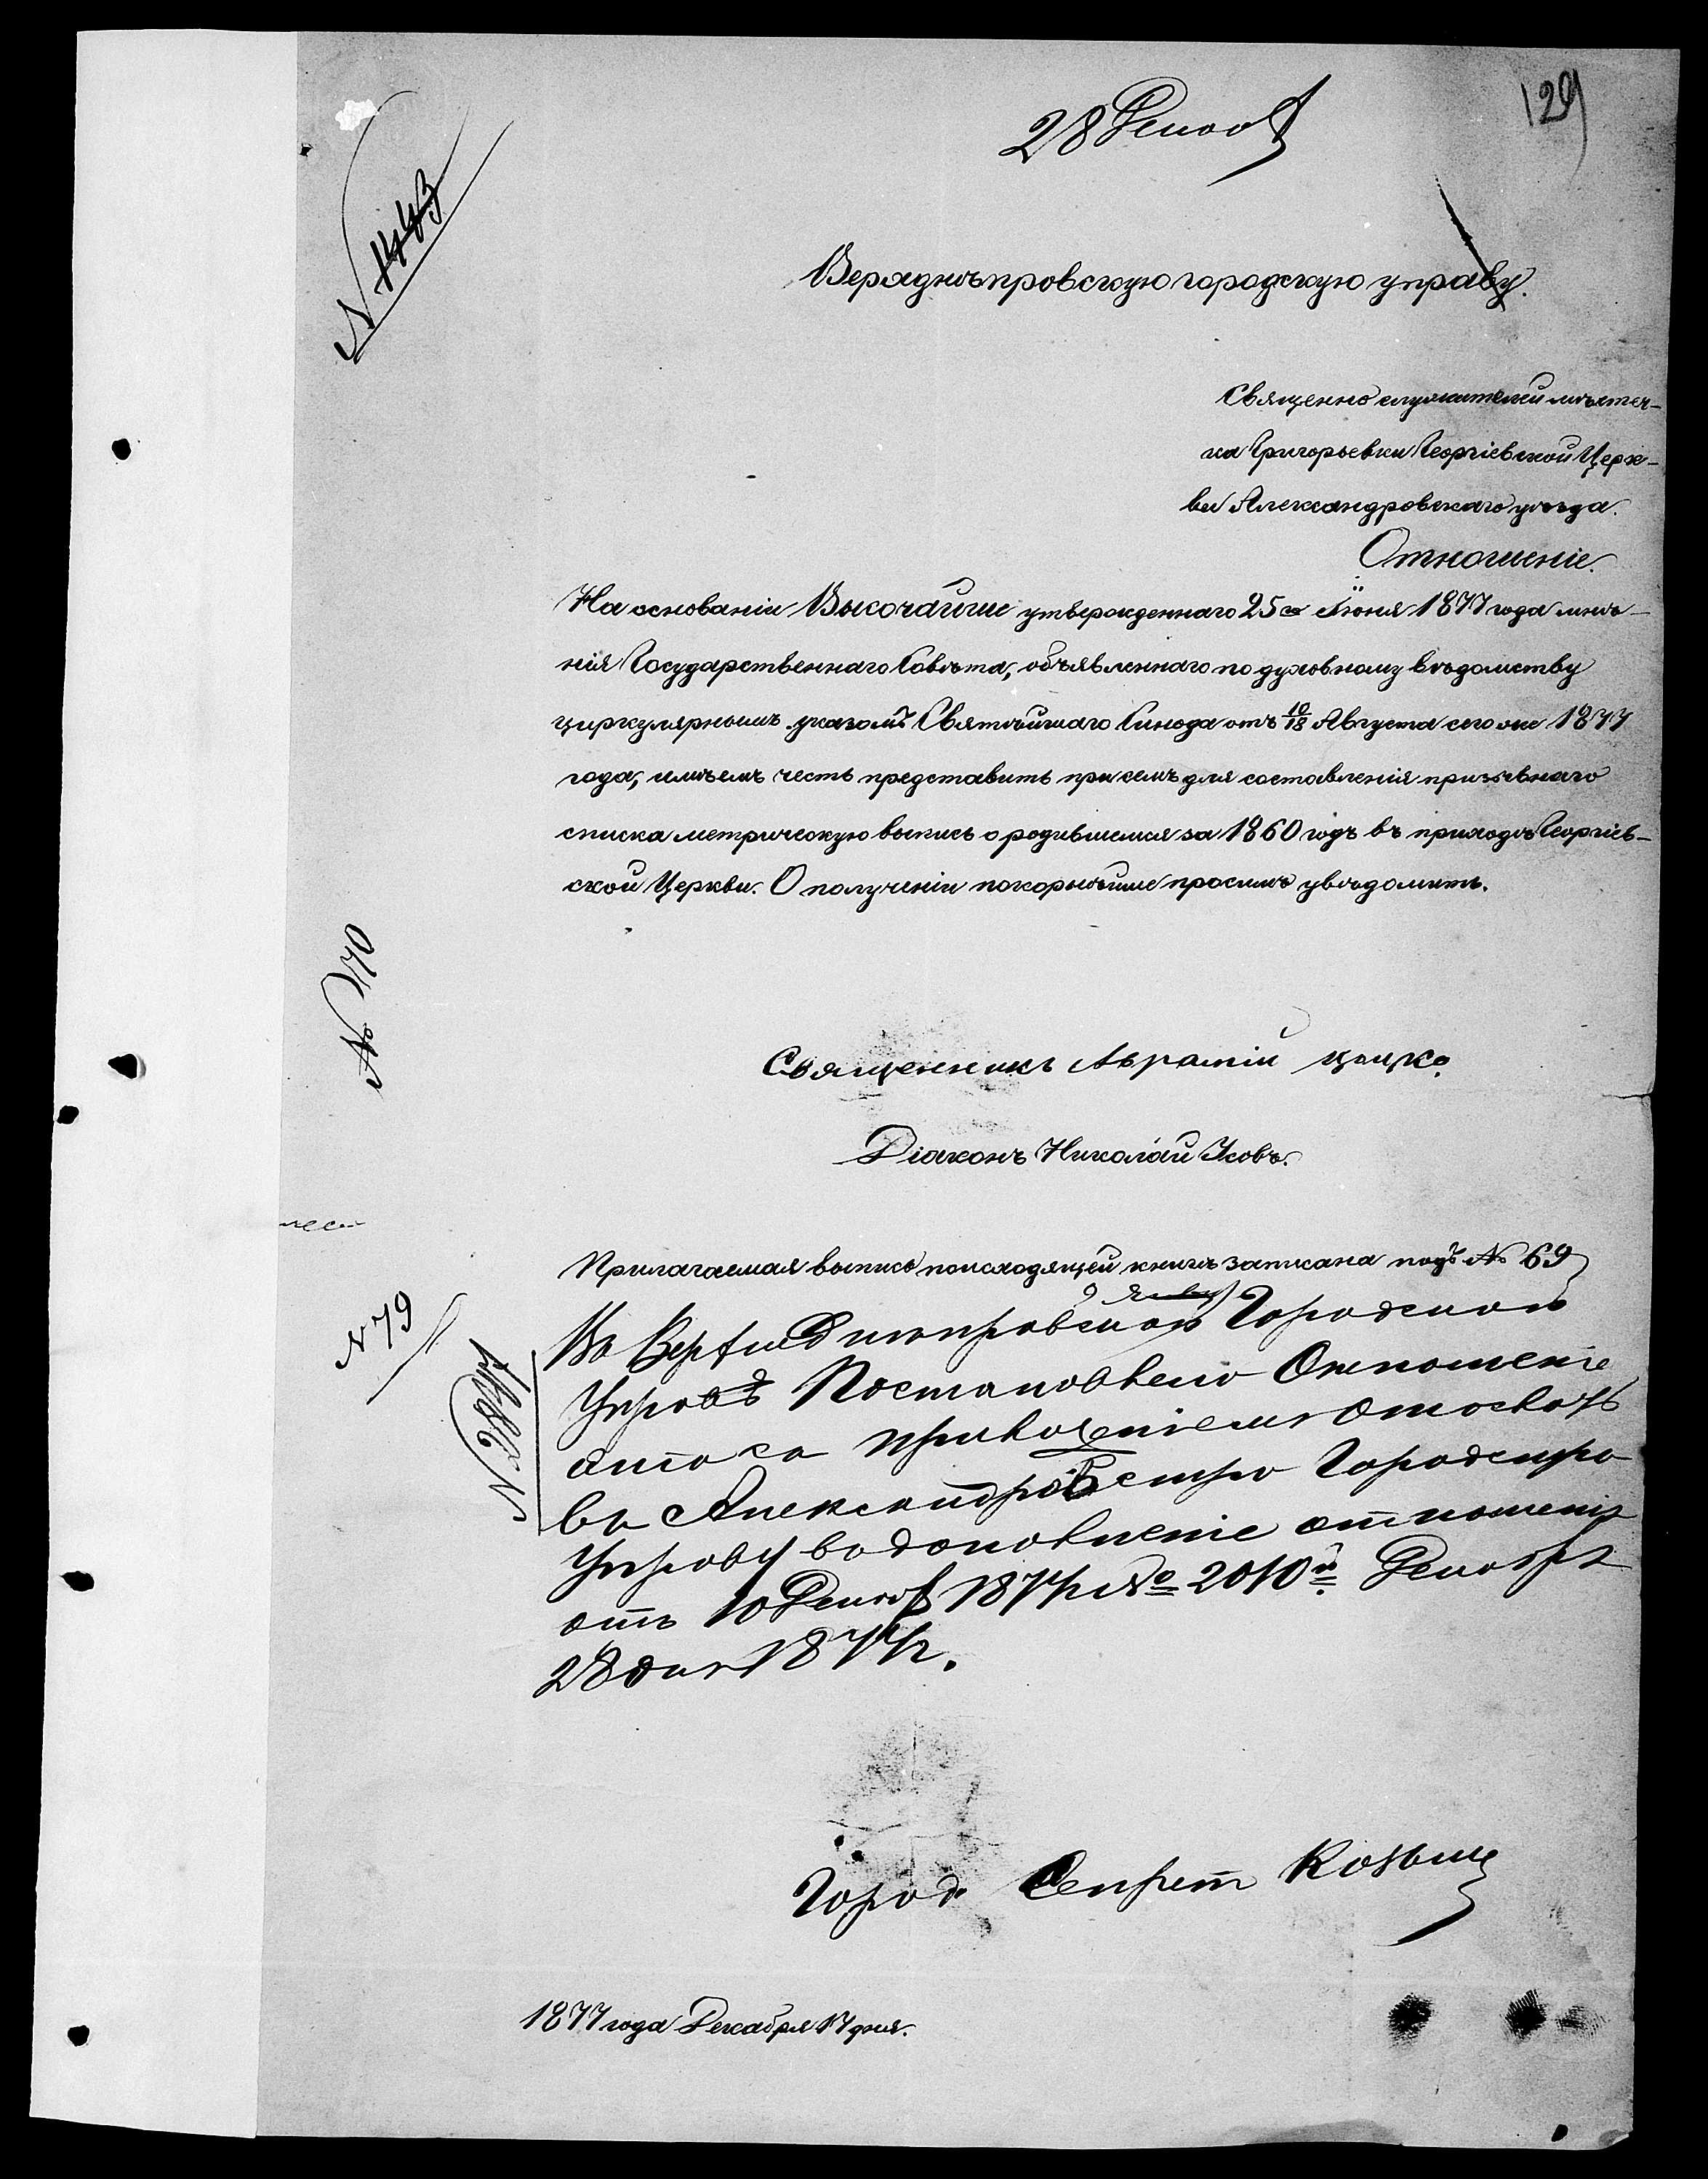 28 Декаб
129
№ 1443
Верхднѣпровскую городскую управу.
Священно служителей мѣстеч-
ка Григорьевки Георгіевской Церк-
ви Александровскаго уѣзда.
Отношеніе.
На основаніи Высочайше утвержденнаго 25го Іюня 1877 года мнѣ-
нія Государственнаго Совѣта, объявленнаго по духовному вѣдомству
циркулярнымъ указомъ Святѣйшаго Синода отъ 10/18 Августа сего же 1877
года, имѣемъ честь представить при семъ для составленія призывнаго
списка метрическую выпись о родившемся за 1860 годъ въ приходѣ Георгіев-
ской Церкви. О полученіи покорнѣйше просимъ увѣдомить.
№ 170
Священникъ Аврамій
Діаконъ Николай Усовъ.
Прилагаемая выпись по исходящей книгѣ записана подъ № 69
№ 79
Въ Верхнеднѣпровской Городской
Управѣ Постановлено Отношеніе
это съ приложеніемъ отослать
въ Александровскую Городскую
Управу въ дополненіе отношенія
отъ 10 Декаб 1877 г. № 2010й. Декабря
28 дня 1877 г.
Город. Секрет
1877 года Декабря 17 дня.